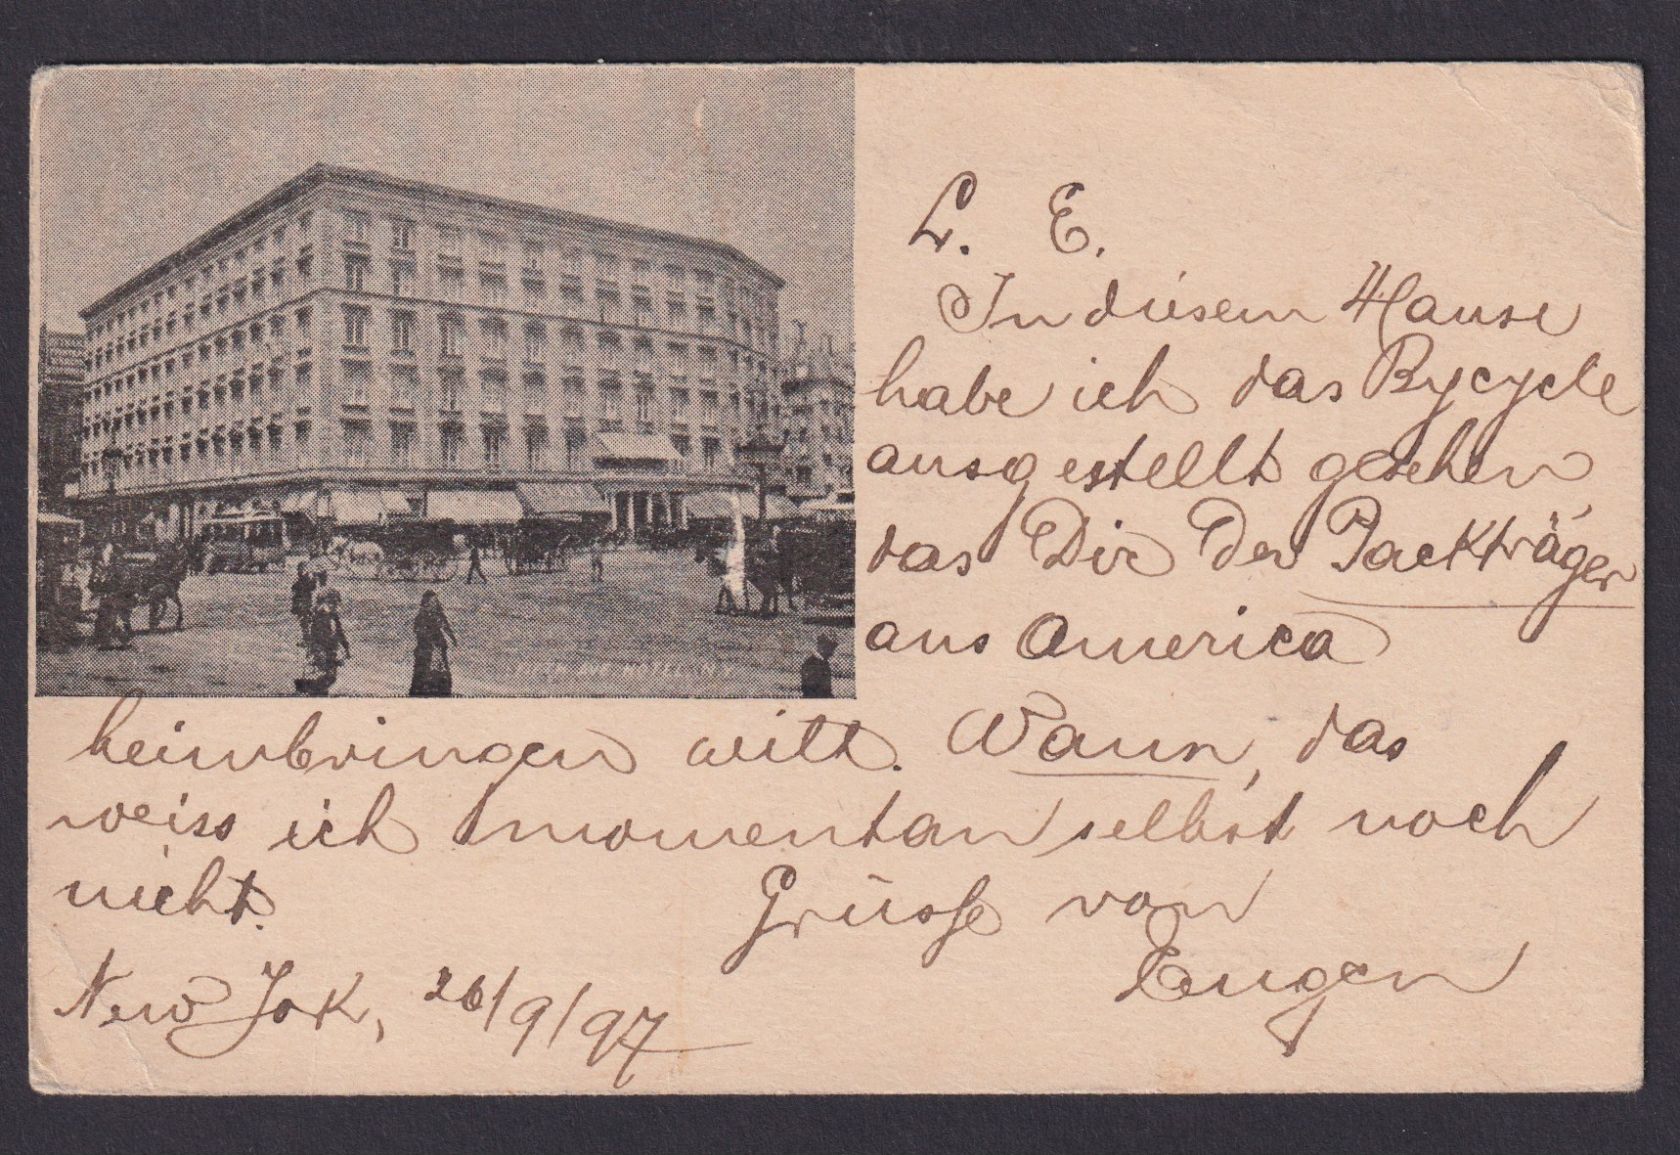 L. E.
In diesem Hause
habe ich das Bycycle
ausgestellt gesehen,
das Dir der Packträger
aus America
heimbringen will. Wann, das
weiss ich momentan selbst noch
nicht.
Grüsse von
Eugen
New York, 26/9/97
AVE. HOTEL. N.Y.